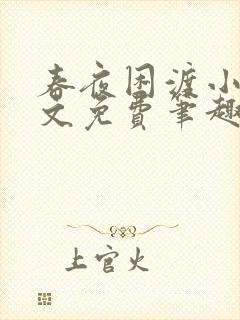 春夜困渡小
文免费笔趣
上官火